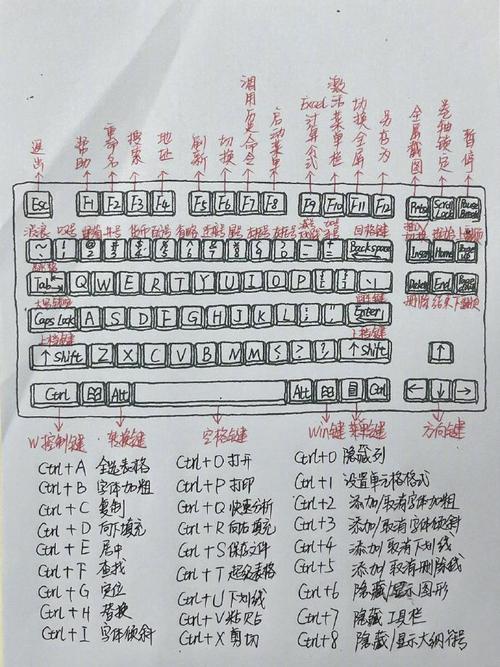 退出 帮助 重命名 搜索 地址 刷新 切换 调用定义命令 启动菜单 Excel计算公式 激活菜单栏 切换全屏 另存为 全屏截图 卷轴锁定 暂停
Esc F1 F2 F3 F4 F5 F6 F7 F8 F9 F10 F11 F12 Prtsc Scroll Lock Pause Break
回格键
~ ! 1 @ 2 # 3 $ 4 % 5 ^ 6 & 7 * 8 ( 9 ) 0 - + = Backspace Insert Home
Tab Q W E R T Y U I O P End
删除 结束 下翻页
大写锁定
Caps Lock A S D F G H J K L Enter
上档键 上档键
↑ Shift Z X C V B N M ↑ Shift ↑
Ctrl Alt Alt Ctrl ← ↓ →
W控制键 转换键 空格键 Win键 菜单键 方向键
Ctrl+A 全选表格 Ctrl+O 打开 Ctrl+0 隐藏列
Ctrl+B 字体加粗 Ctrl+P 打印 Ctrl+1 设置单元格格式
Ctrl+C 复制 Ctrl+Q 快速分析 Ctrl+2 添加/取消字体加粗
Ctrl+D 向下填充 Ctrl+R 向右填充 Ctrl+3 添加/取消字体倾斜
Ctrl+E 居中 Ctrl+S 保存文件 Ctrl+4 添加/取消下划线
Ctrl+F 查找 Ctrl+T 超级表格 Ctrl+5 添加/取消删除线
Ctrl+G 定位 Ctrl+U 下划线 Ctrl+6 隐藏/显示图形
Ctrl+H 替换 Ctrl+V 粘贴 Ctrl+7 隐藏工具栏
Ctrl+I 字体倾斜 Ctrl+X 剪切 Ctrl+8 隐藏/显示大纲符号